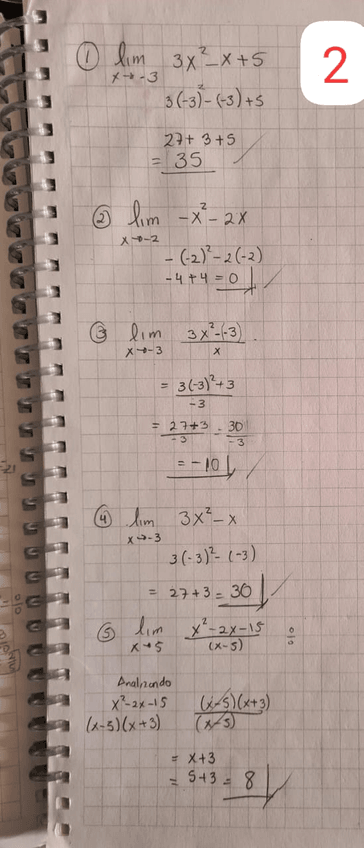 2
① lim x→-3 3x²-x+5
3(-3)²-(-3)+5
27+3+5
= 35
② lim x→-2 -x²-2x
-(-2)²-2(-2)
-4+4=0
③ lim x→-3 3x²-(-3)/x
= 3(-3)²+3/-3
= 27+3/-3 = 30/-3
= -10
④ lim x→-3 3x²-x
3(-3)²-(-3)
= 27+3=30
⑤ lim x→5 x²-2x-15/(x-5) 0/0
Analizando
x²-2x-15 (x-5)(x+3)/(x-5)
(x-5)(x+3)
= x+3
= 5+3 = 8